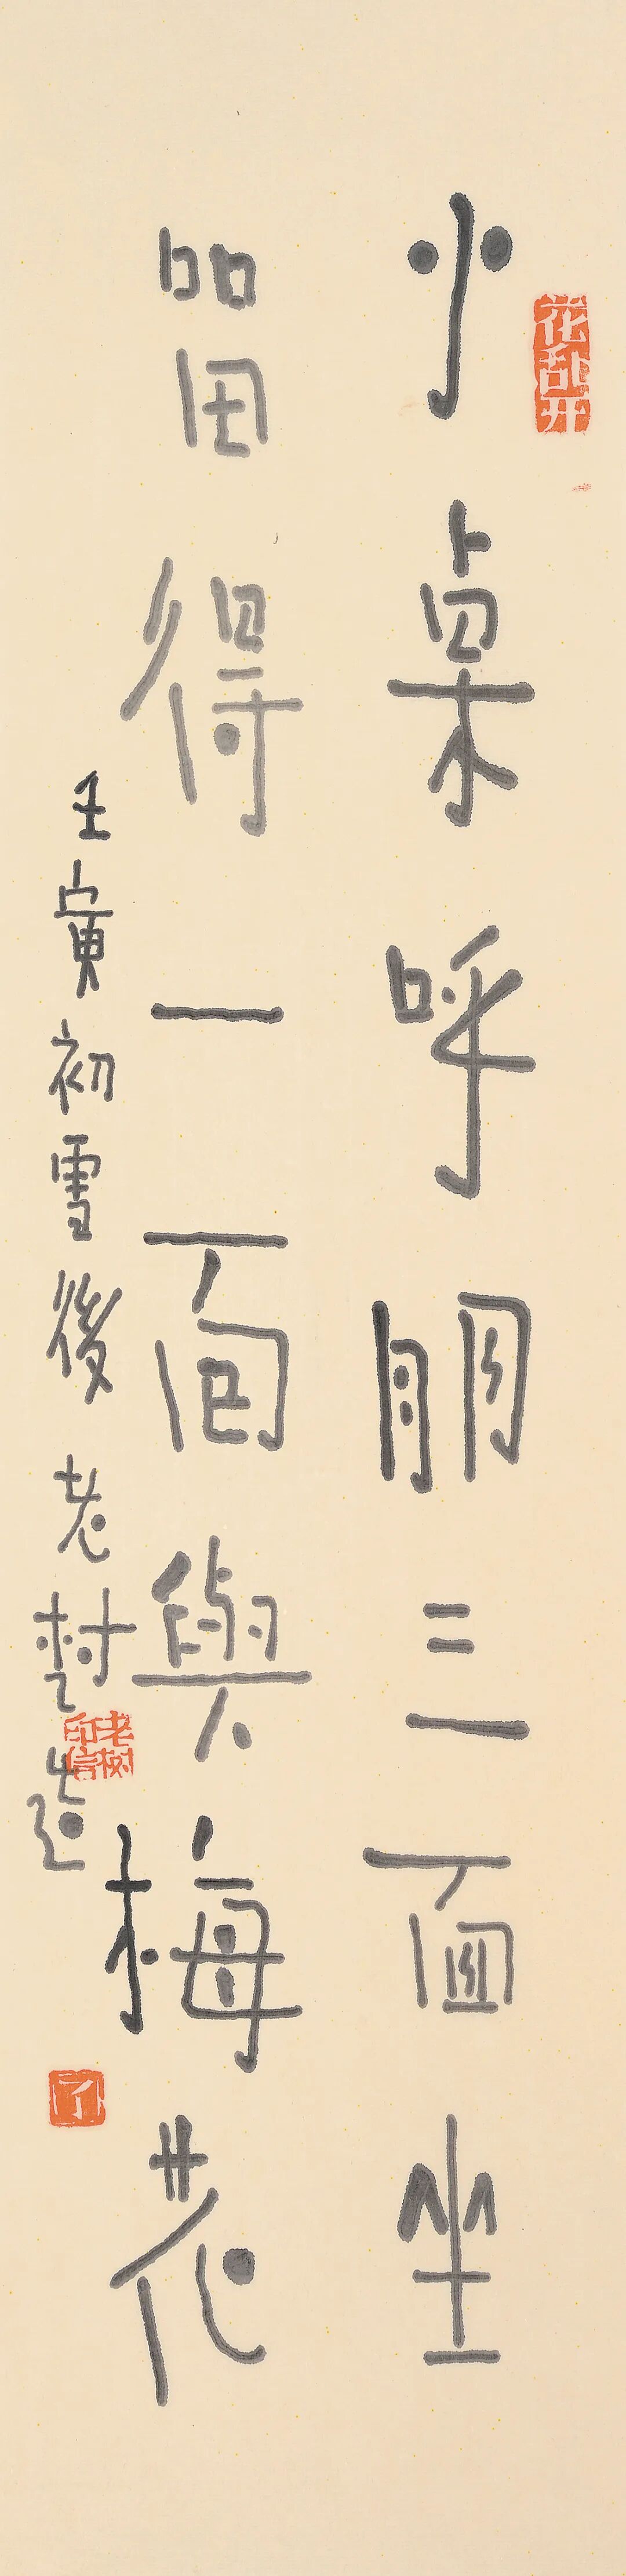 花乱开
小桌呼朋三面坐
留得一面與梅花
壬寅初雪後老树畫并題
老树印信
了